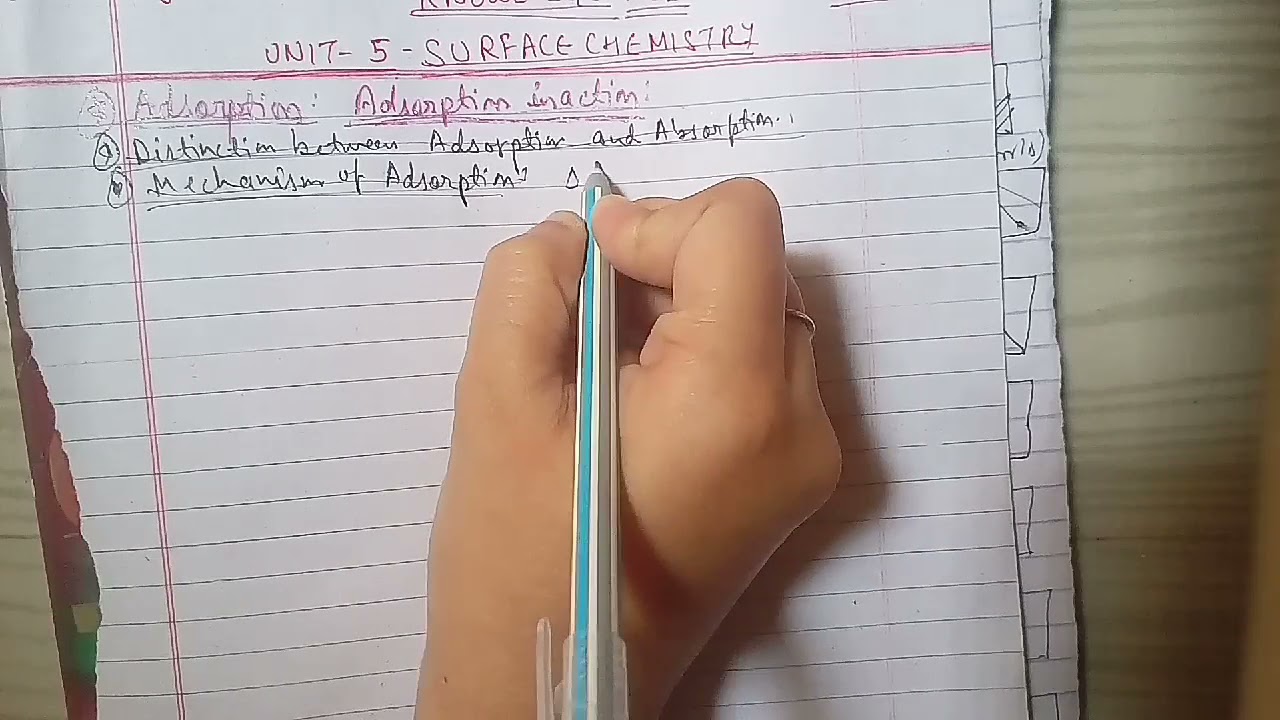 UNIT- 5 - SURFACE CHEMISTRY
Adsorption: Adsorption in action:
(a) Distinction between Adsorption and Absorption:
(b) Mechanism of Adsorption: Δ